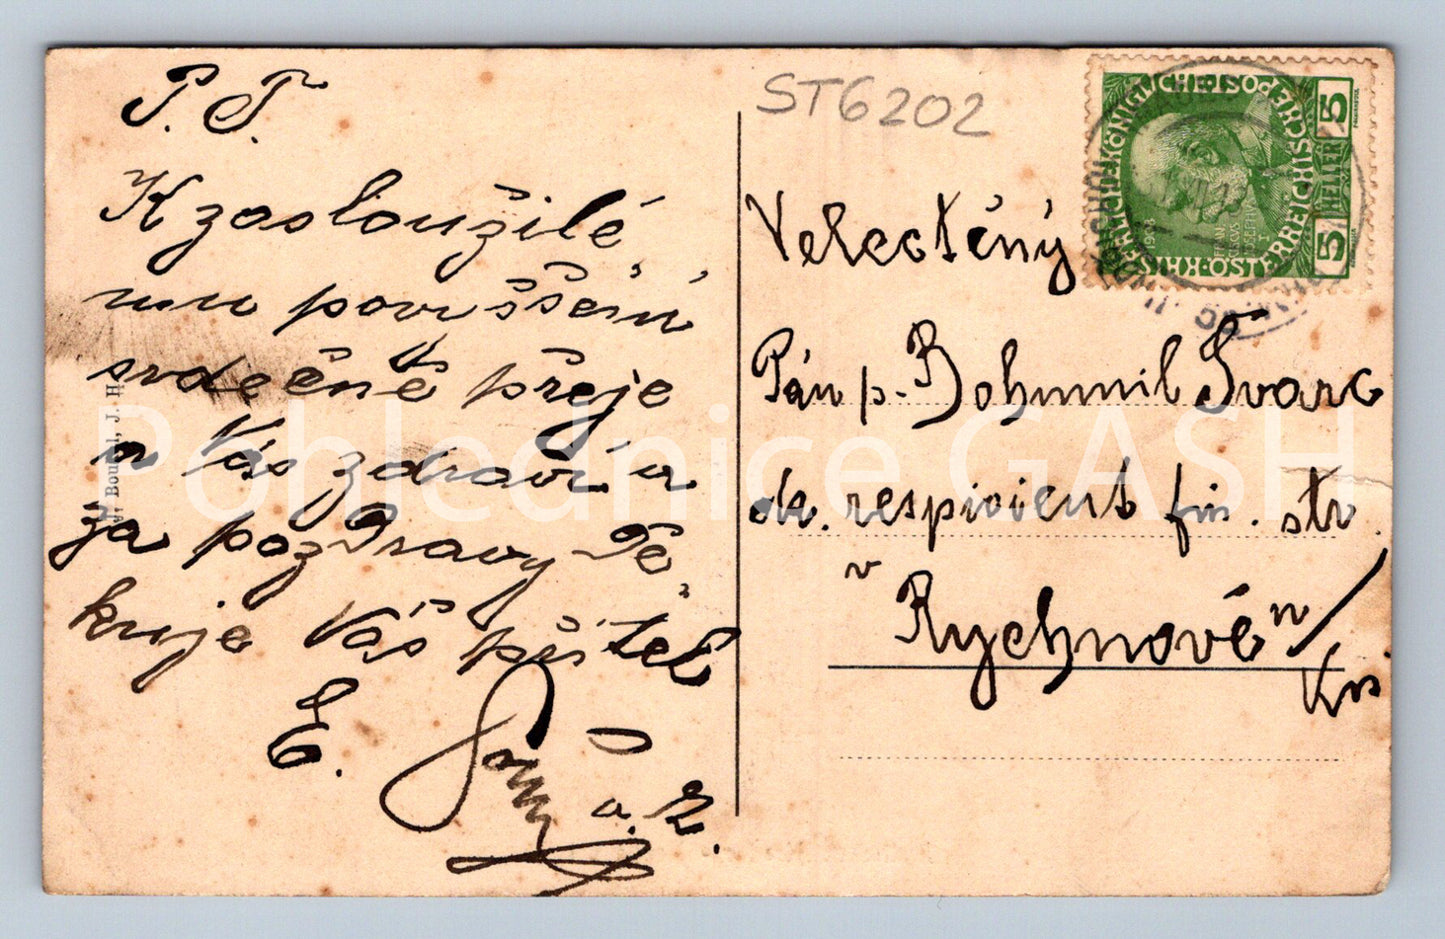 P. T.
K zasloužilé
mu povýšení
srdečně přeje
a Vás zdraví a
za pozdravy Dě
kuje Váš přítel
E.
a. R.
J. Bouzal, J. H.
ST6202
Velectěný
Pán p. Bohumil Švarc
ck. respicient fin. str.
v
Rychnově n/
Kn
ÖSTERREICHISCHE POST
5 HELLER 5
1908
Pohlednice GASH